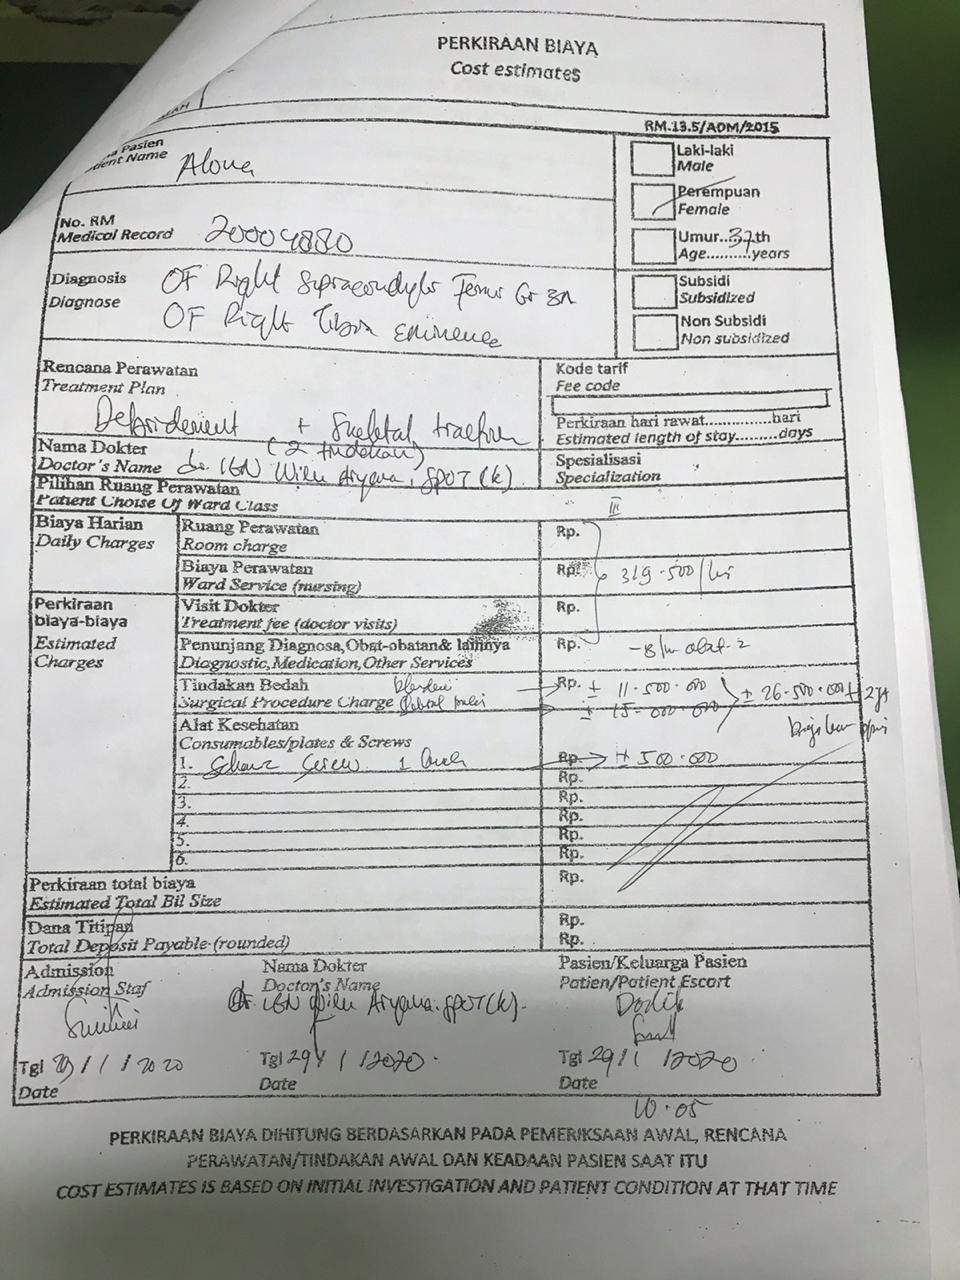 PERKIRAAN BIAYA
Cost estimates
RM.13.5/ADM/2015
Pasien
Name
Laki-laki
Male
Perempuan
Female
No. RM
Medical Record 20004880
Umur..37th
Age..........years
Diagnosis OF Right Supracondylar Femur Gr
Diagnose OF Right Eminence
Subsidi
Subsidized
Non Subsidi
Non subsidized
Rencana Perawatan
Treatment Plan
+ Skeletal traction
(2 tindakan)
Kode tarif
Fee code
Perkiraan hari rawat...............hari
Estimated length of stay.........days
Nama Dokter
Doctor's Name dr. IGN Wien Aryana, SpOT (K).
Spesialisasi
Specialization
Pilihan Ruang Perawatan
Patient Choise Of Ward Class III
Biaya Harian
Daily Charges
Ruang Perawatan
Room charge
Rp.
Biaya Perawatan
Ward Service (nursing)
Rp. 319.500/hr
Perkiraan
biaya-biaya
Estimated
Charges
Visit Dokter
Treatment fee (doctor visits)
Rp.
Penunjang Diagnosa,Obat-obatan& lainnya
Diagnostic,Medication,Other Services
Rp.
Tindakan Bedah
Surgical Procedure Charge
Rp. ± 11.500.000
± 15.000.000
± 26.500.000
Alat Kesehatan
Consumables/plates & Screws
1. Schanz Screw 1 Rp. ± 500.000
2. Rp.
3. Rp.
4. Rp.
5. Rp.
6. Rp.
Perkiraan total biaya
Estimated Total Bil Size
Rp.
Dana Titipan
Total Deposit Payable (rounded)
Rp.
Rp.
Admission
Admission Staf
Nama Dokter
Doctor's Name
dr. IGN Wien Aryana. SpOT(K).
Pasien/Keluarga Pasien
Patien/Patient Escort
Tgl 29/1/2020
Date
Tgl 29/1/2020.
Date
Tgl 29/1/2020
Date
10.05
PERKIRAAN BIAYA DIHITUNG BERDASARKAN PADA PEMERIKSAAN AWAL, RENCANA
PERAWATAN/TINDAKAN AWAL DAN KEADAAN PASIEN SAAT ITU
COST ESTIMATES IS BASED ON INITIAL INVESTIGATION AND PATIENT CONDITION AT THAT TIME